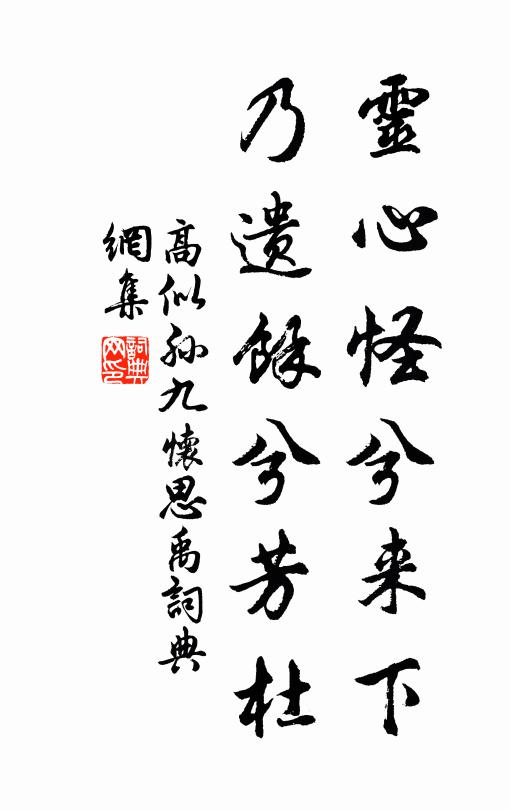 靈心怪兮来下
乃遺餘兮芳杜
高似孙九懷思禹詞典
網集
詞典網印